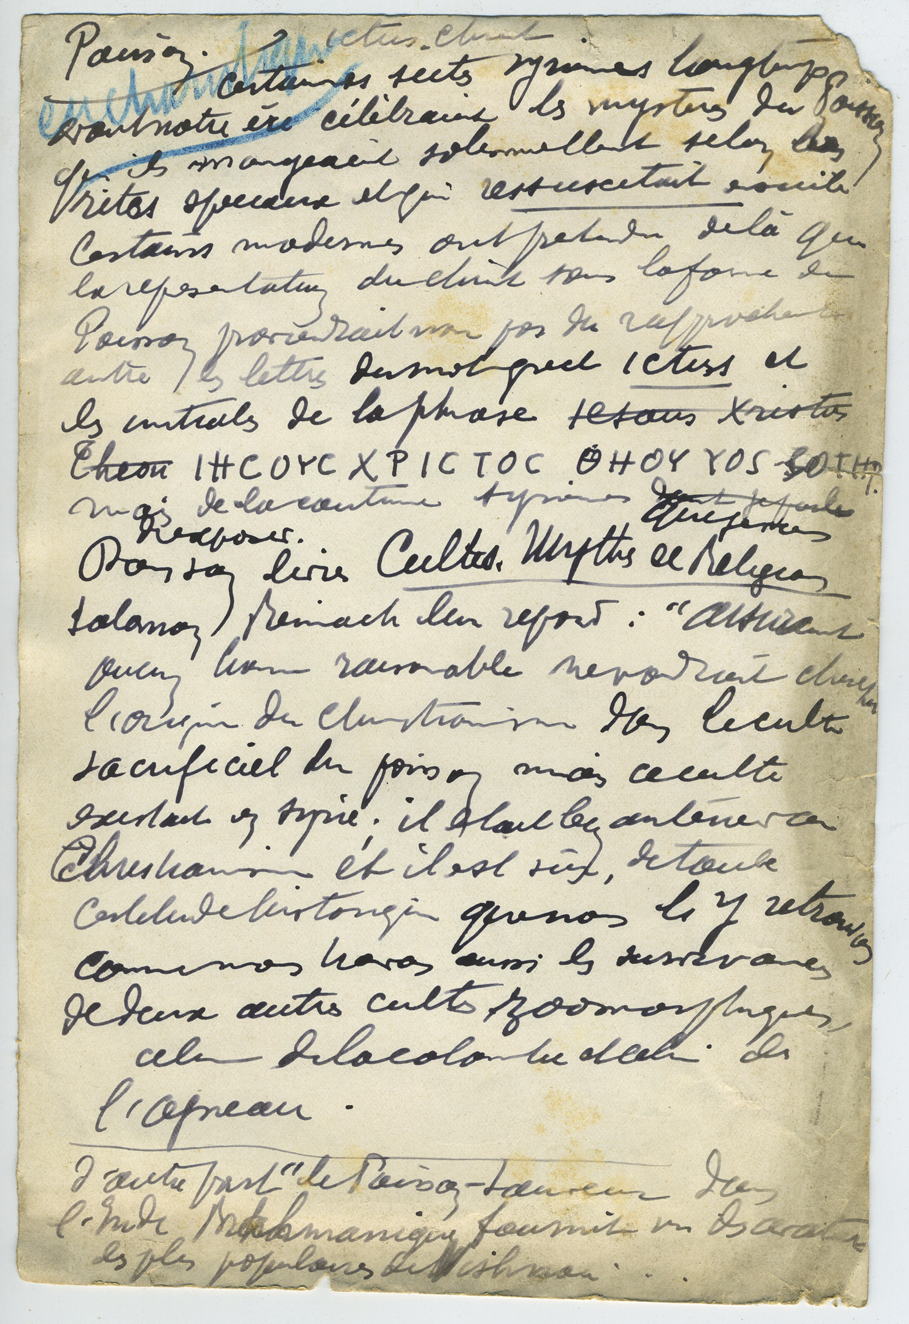 Poisson. ictus. Christ
en chantier
certaines sectes syriennes longtemps
avant notre ère célébraient les mystères du Poisson
qu'ils mangeaient solennellement selon les
rites speciaux et qui ressuscitait ensuite
Certains modernes ont pretendu de là que
la representation du Christ sous la forme du
Poisson proviendrait non pas du rapprochement
entre les lettres du mot grec ictus et
les initiales de la phrase Xristos
Theou IHCOYC XPICTOC ΘHOY YOS SOTHP.
mais de la coutume syrienne
d'exposer.
Dans son livre Cultes, Mythes et Religions
Salomon Reinach leur repond : "Assurement
aucun homme raisonable ne voudrait chercher
l'origine du Christianisme dans le culte
sacrificiel du poisson mais ce culte
existait en Syrie ; il était bien antérieur au
Christianisme et il est sûr, de toute
certitude historique que nous les y retrouvons
comme nous avons aussi les survivances
de deux autres cultes zoomorphiques,
celui de la colombe et celui de
l'agneau.
d'autre part "le Poisson-Sauveur dans
l'Inde Brahmanique fournit un des avatars
les plus populaires de Vishnou.